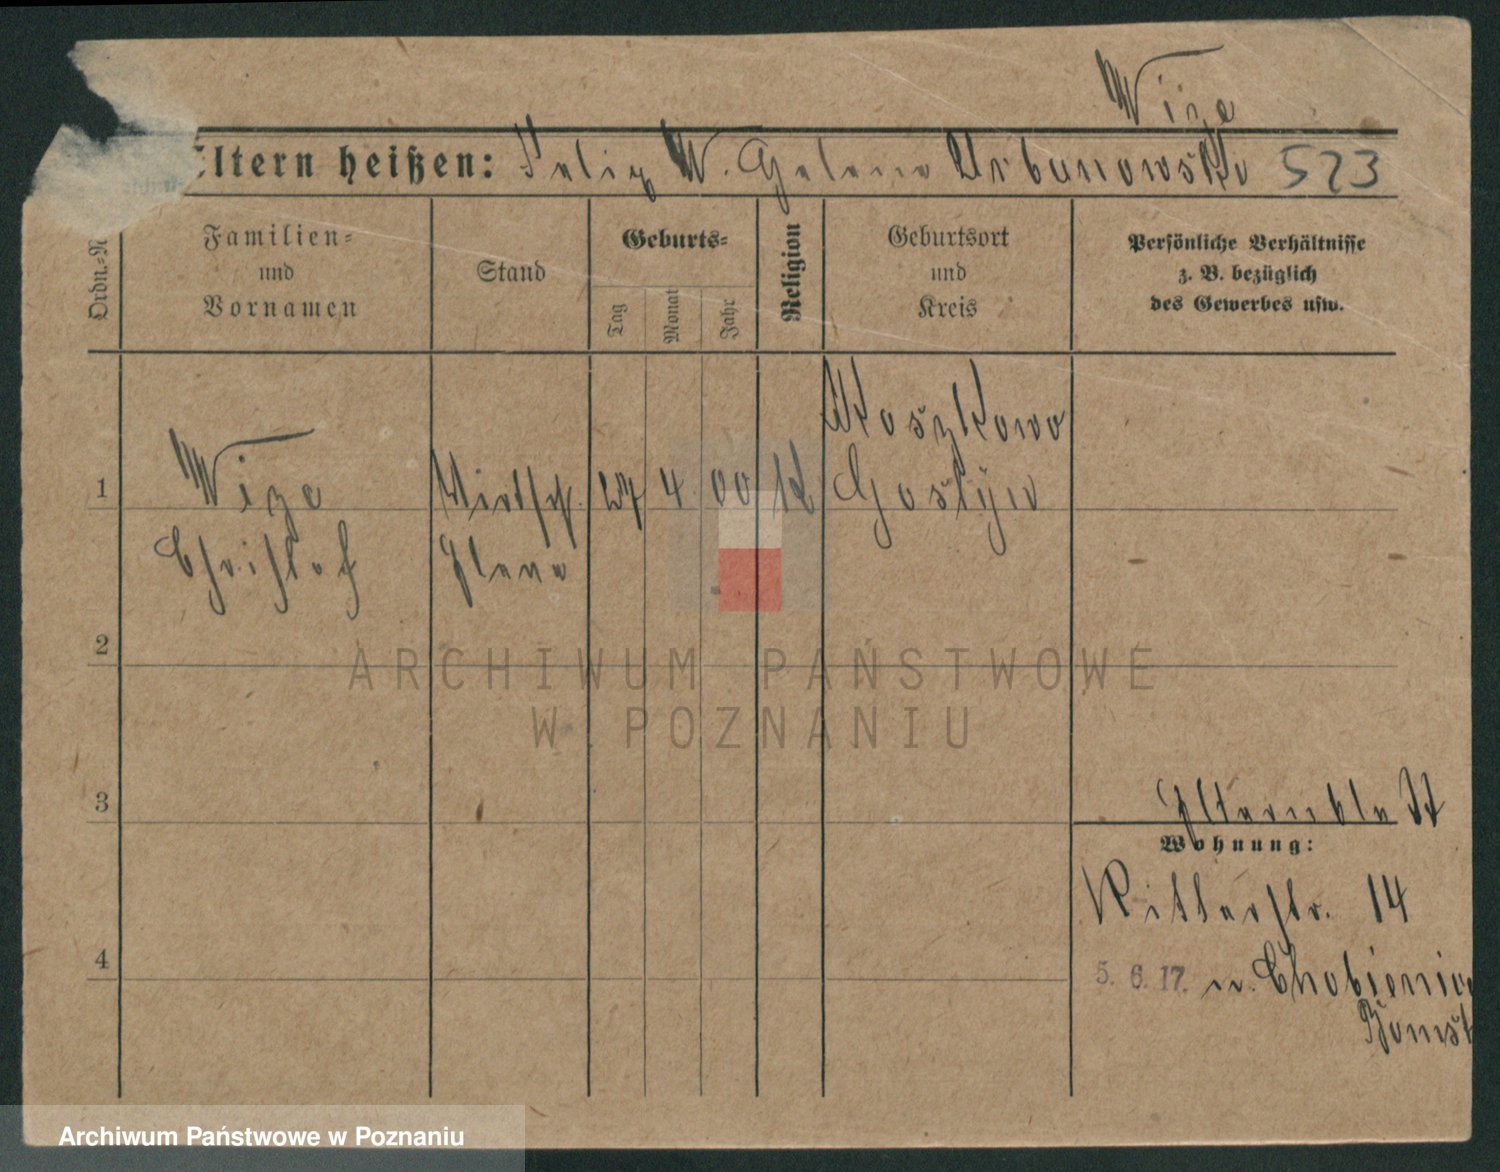 Wize
Eltern heißen: Felix W. Helene Urbanowski 523
Ordn.-N
Familien=
und
Vornamen
Stand
Geburts=
Tag
Monat
Jahr
Religion
Geburtsort
und
Kreis
Persönliche Verhältnisse
z. B. bezüglich
des Gewerbes usw.
1
Wize
Christof
Wirtsch.
Eleve
27 4 00 K
Koszkowo
Gostyn
2
ARCHIWUM PAŃSTWOWE
W POZNANIU
3
Elternblatt
Wohnung:
Ritterstr. 14
4
5. 6. 17. n. Chobienice
Bomst
Archiwum Państwowe w Poznaniu